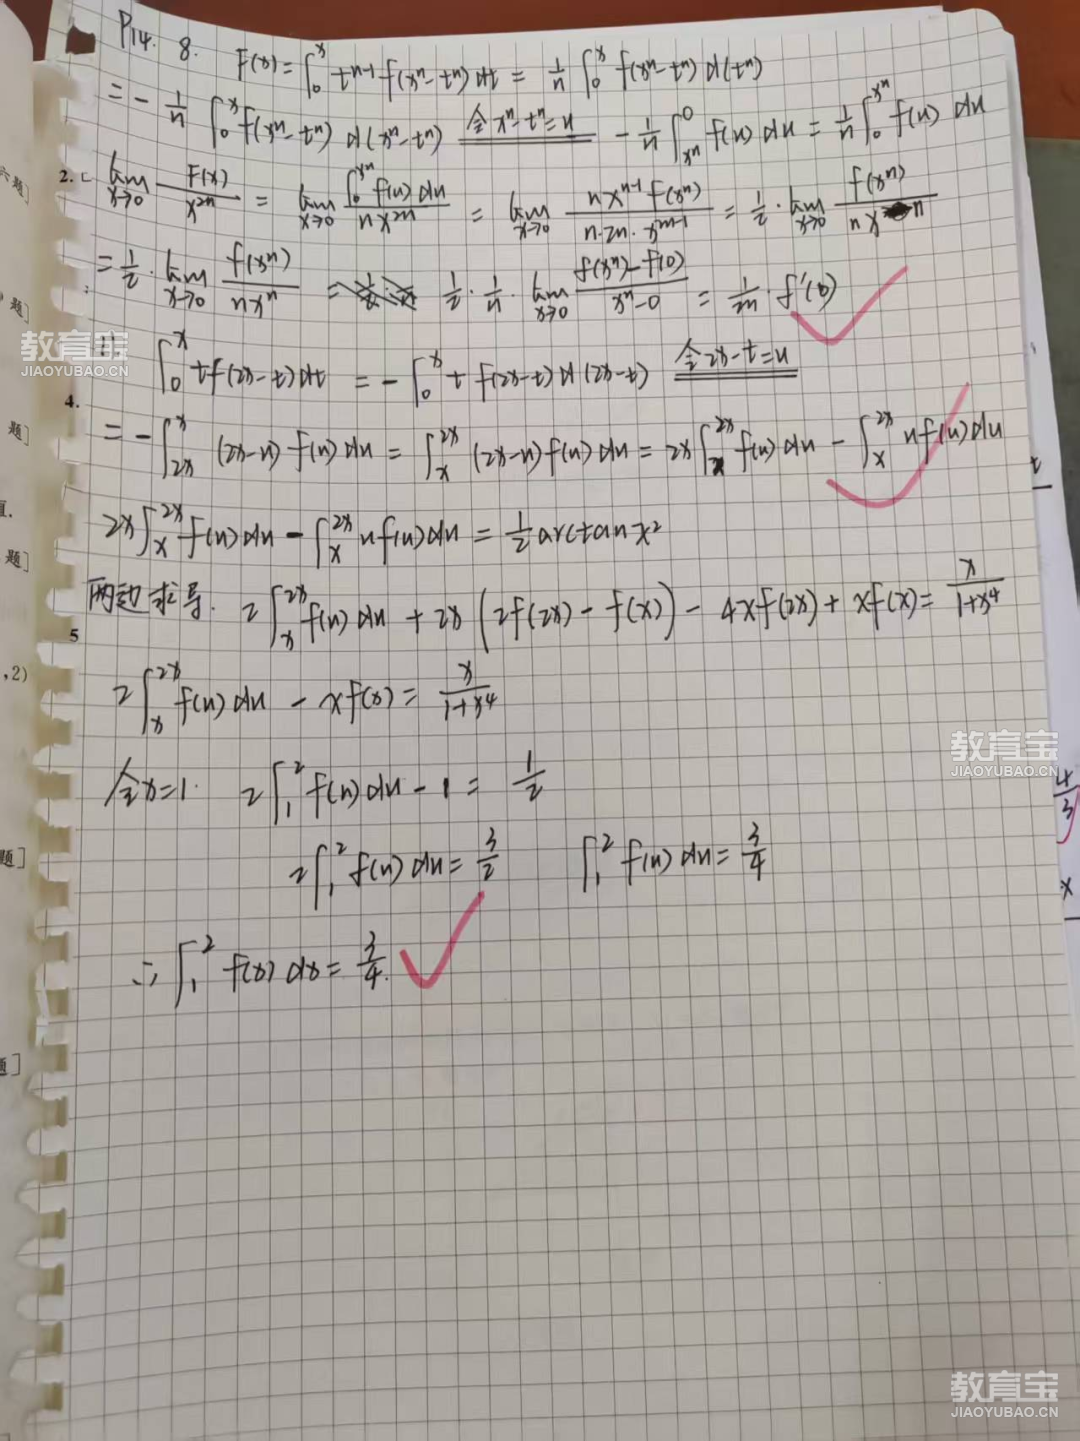 P14. 8. F(x) = ∫₀ˣ tⁿ⁻¹ f(xⁿ-tⁿ) dt = 1/n ∫₀ˣ f(xⁿ-tⁿ) d(tⁿ)
= - 1/n ∫₀ˣ f(xⁿ-tⁿ) d(xⁿ-tⁿ) 令xⁿ-tⁿ=u - 1/n ∫_{xⁿ}^0 f(u) du = 1/n ∫_0^{xⁿ} f(u) du
lim_{x→0} F(x)/x²ⁿ = lim_{x→0} ∫_0^{xⁿ} f(u) du / nx²ⁿ = lim_{x→0} nxⁿ⁻¹ f(xⁿ) / n·2n·x²ⁿ⁻¹ = 1/2 · lim_{x→0} f(xⁿ) / nxⁿ
= 1/2 · lim_{x→0} f(xⁿ)/nxⁿ = 1/2 · 1/n · lim_{x→0} (f(xⁿ)-f(0))/(xⁿ-0) = 1/2n · f'(0)
11 ∫₀ˣ tf(2x-t)dt = - ∫₀ˣ t f(2x-t) d(2x-t) 令2x-t=u
= - ∫_{2x}^x (2x-u) f(u) du = ∫_x^{2x} (2x-u) f(u) du = 2x ∫_x^{2x} f(u) du - ∫_x^{2x} u f(u) du
2x ∫_x^{2x} f(u) du - ∫_x^{2x} u f(u) du = 1/2 arctan x²
两边求导. 2 ∫_x^{2x} f(u) du + 2x (2f(2x) - f(x)) - 4xf(2x) + xf(x) = x/(1+x⁴)
2 ∫_x^{2x} f(u) du - xf(x) = x/(1+x⁴)
令x=1. 2 ∫₁² f(u) du - 1 = 1/2
2 ∫₁² f(u) du = 3/2 ∫₁² f(u) du = 3/4
∴ ∫₁² f(x) dx = 3/4.
2.
4.
5
题]
题]
题]
题]
,2)
题]
题]
4/3
x
教育宝
JIAOYUBAO.CN
教育宝
JIAOYUBAO.CN
教育宝
JIAOYUBAO.CN